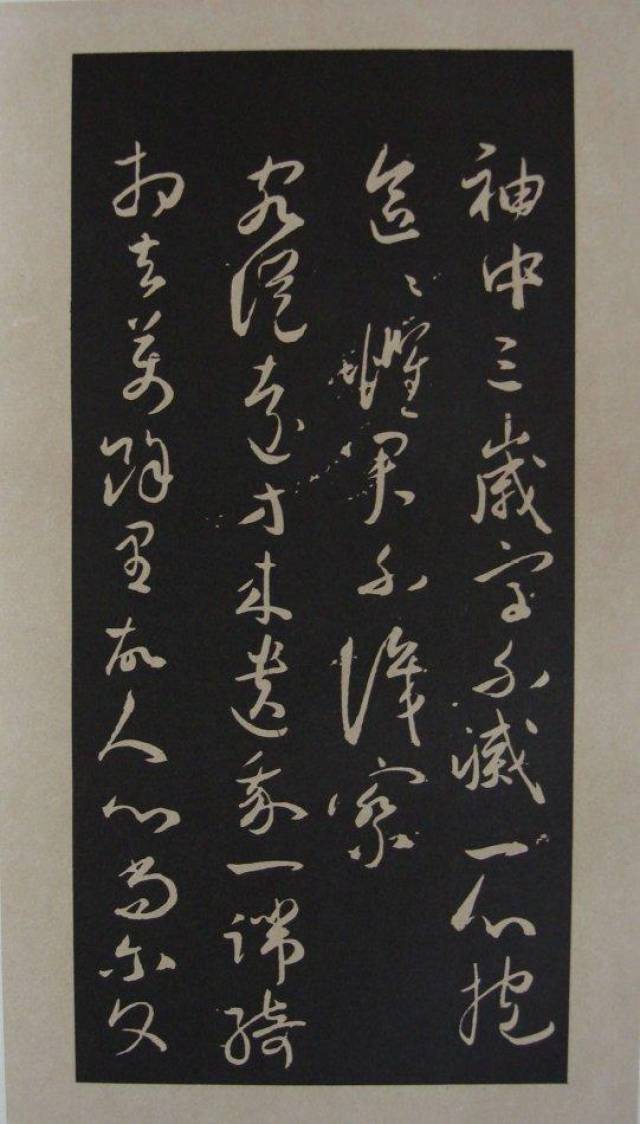 袖中三歲字不滅一心抱
區〻懼君不識察
客從遠方來遺我一端綺
相去萬餘里故人心尚尔文